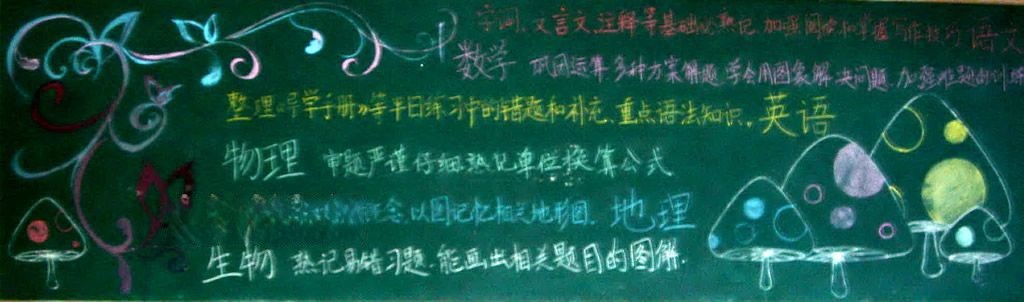 字词、文言文、注释等基础必熟记,加强阅读和掌握写作技巧 语文
数学 巩固运算多种方案解题,学会用图象解决问题,加强难题的训练
整理《导学手册》等平日练习中的错题和补充,重点语法知识。英语
物理 审题严谨仔细熟记单位换算公式
概念,以图记忆相关地形图. 地理
生物 熟记易错习题.能画出相关题目的图解.